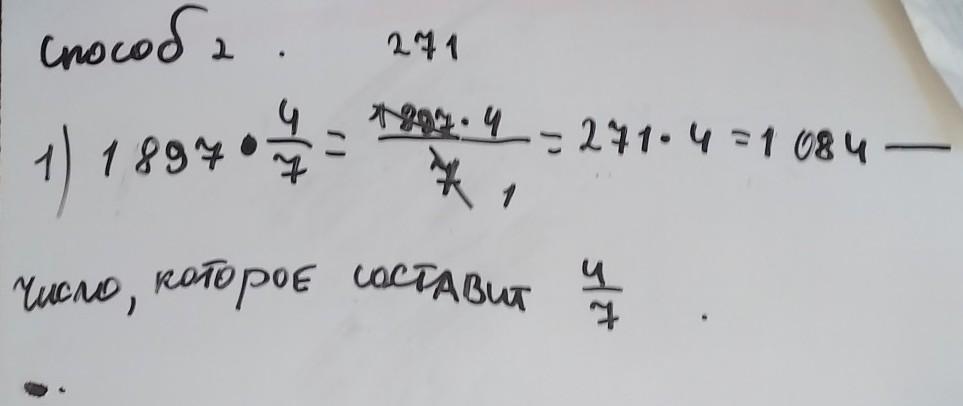 Способ 2.
271
1) 1897 • 4/7 = 1897 · 4 / 7 1 = 271 · 4 = 1084 —
число, которое составит 4/7.